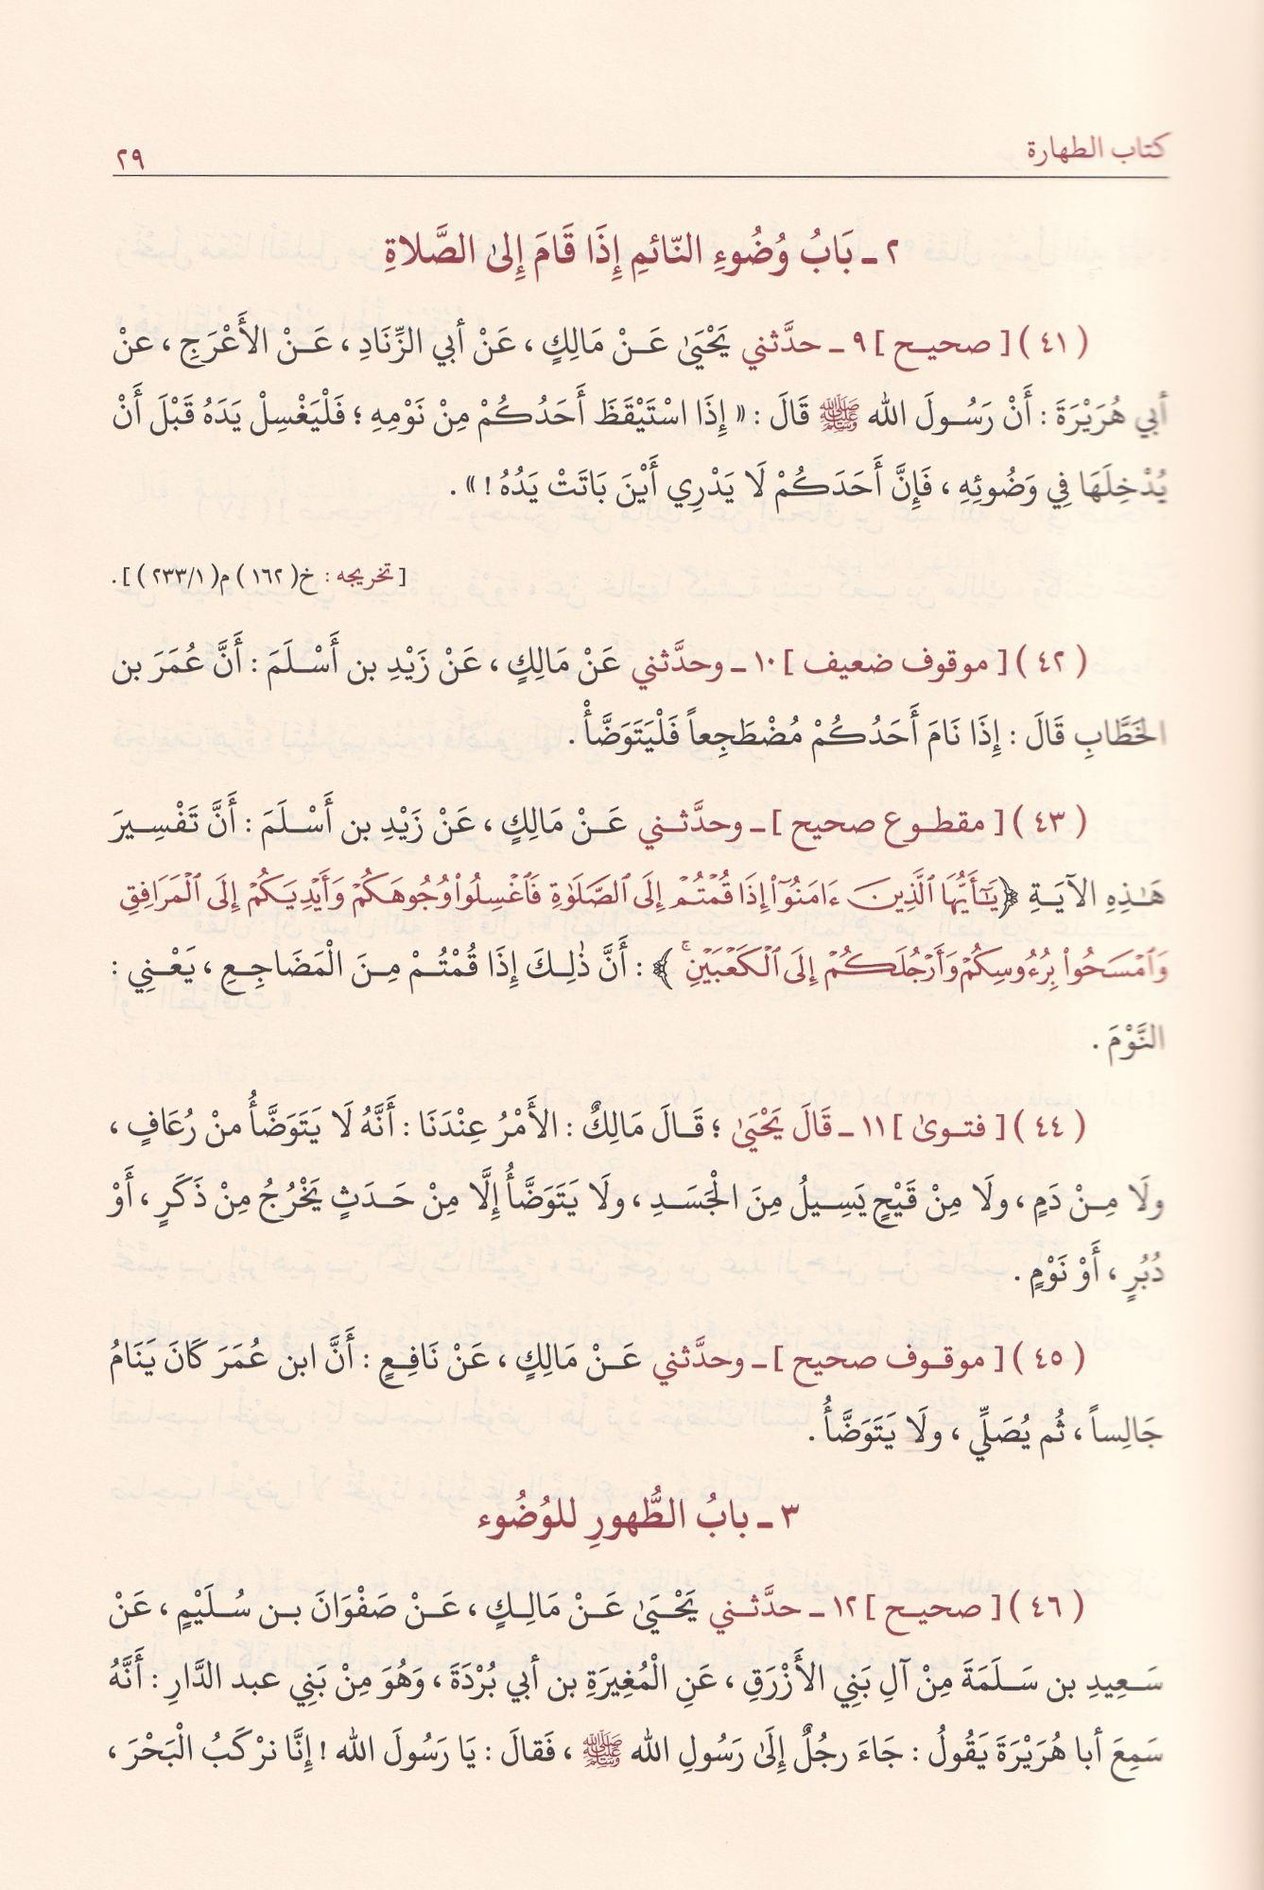 كتاب الطهارة
٢٩
٢ ـ بَابُ وُضُوءِ النّائمِ إِذَا قَامَ إِلىٰ الصَّلاةِ
( ٤١ ) [ صحيح ] ٩ ـ حدَّثني يَحْيَىٰ عَنْ مَالِكٍ ، عَنْ أبي الزِّنَادِ ، عَنْ الأَعْرَجِ ، عنْ
أبي هُرَيْرَةَ : أَنْ رَسُولَ الله ﷺ قَالَ : « إِذَا اسْتَيْقَظَ أَحَدُكُمْ مِنْ نَوْمِهِ ؛ فَلْيَغْسِلْ يَدَهُ قَبْلَ أَنْ
يُدْخِلَهَا فِي وَضُوئِهِ ، فَإِنَّ أَحَدَكُمْ لَا يَدْرِي أَيْنَ بَاتَتْ يَدُهُ ! » .
[ تخريجه : خ( ١٦٢ ) م( ٢٣٣/١ ) ] .
( ٤٢ ) [ موقوف ضعيف ] ١٠ ـ وحدَّثني عَنْ مَالِكٍ ، عَنْ زَيْدِ بن أَسْلَمَ : أَنَّ عُمَرَ بن
الخَطَّابِ قَالَ : إِذَا نَامَ أَحَدُكُمْ مُضْطَجِعاً فَلْيَتَوَضَّأْ .
( ٤٣ ) [ مقطوع صحيح ] ـ وحدَّثني عَنْ مَالِكٍ ، عَنْ زَيْدِ بن أَسْلَمَ : أَنَّ تَفْسِيرَ
هَـٰذِهِ الآيَةِ ﴿يَـٰٓأَيُّهَا ٱلَّذِينَ ءَامَنُوٓاْ إِذَا قُمْتُمْ إِلَى ٱلصَّلَوٰةِ فَٱغْسِلُواْ وُجُوهَكُمْ وَأَيْدِيَكُمْ إِلَى ٱلْمَرَافِقِ
وَٱمْسَحُواْ بِرُءُوسِكُمْ وَأَرْجُلَكُمْ إِلَى ٱلْكَعْبَيْنِ ۚ ﴾ : أَنَّ ذٰلِكَ إِذَا قُمْتُمْ مِنَ الْمَضَاجِعِ ، يَعْنِي :
النَّوْمَ .
( ٤٤ ) [ فتوىٰ ] ١١ ـ قَالَ يَحْيَىٰ ؛ قَالَ مَالِكٌ : الأَمْرُ عِنْدَنَا : أَنَّهُ لَا يَتَوَضَّأُ منْ رُعَافٍ ،
ولَا مِنْ دَمٍ ، ولَا مِنْ قَيْحٍ يَسِيلُ مِنَ الْجَسَدِ ، ولَا يَتَوَضَّأُ إِلَّا مِنْ حَدَثٍ يَخْرُجُ مِنْ ذَكَرٍ ، أَوْ
دُبُرٍ ، أَوْ نَوْمٍ .
( ٤٥ ) [ موقوف صحيح ] ـ وحدَّثني عَنْ مَالِكٍ ، عَنْ نَافِعٍ : أَنَّ ابن عُمَرَ كَانَ يَنَامُ
جَالِساً ، ثُم يُصَلِّي ، ولَا يَتَوَضَّأُ .
٣ ـ بابُ الطُّهورِ للوُضُوء
( ٤٦ ) [ صحيح ] ١٢ ـ حدَّثني يَحْيَىٰ عَنْ مَالِكٍ ، عَنْ صَفْوَانَ بن سُلَيْمٍ ، عَنْ
سَعِيدِ بن سَلَمَةَ مِنْ آلِ بَنِي الأَزْرَقِ ، عَنِ الْمُغِيرَةِ بن أبي بُرْدَةَ ، وَهُوَ مِنْ بَنِي عبد الدَّارِ : أَنَّهُ
سَمِعَ أبا هُرَيْرَةَ يَقُولُ : جَاءَ رجُلٌ إِلَىٰ رَسُولِ الله ﷺ ، فَقالَ : يَا رَسُولَ الله ! إِنَّا نرْكَبُ الْبَحْرَ ،